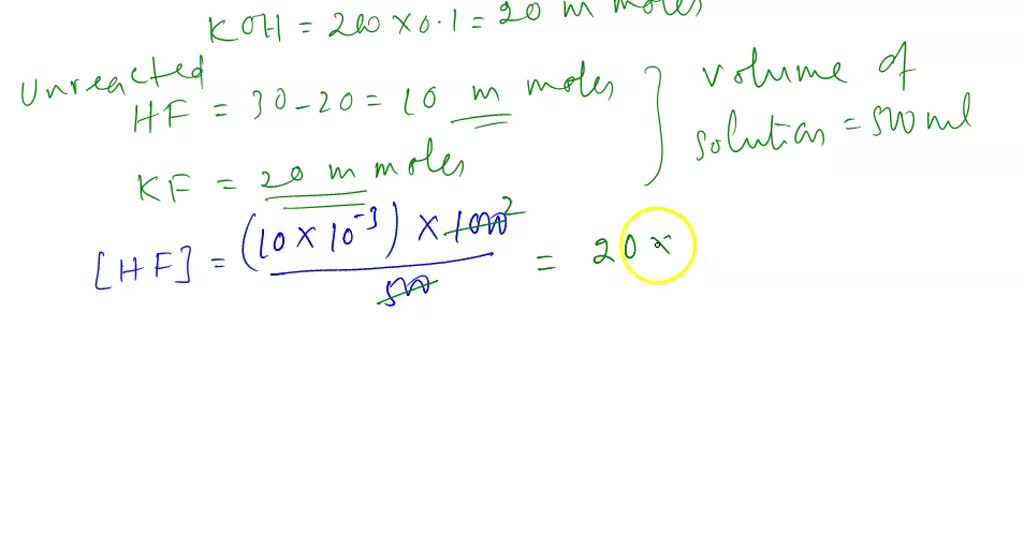 KOH = 200 x 0.1 = 20 m moles
Unreacted
HF = 30 - 20 = 10 m moles
KF = 20 m moles
volume of
solution = 500 ml
[HF] = (10 x 10^-3) x 1000 2 / 500 = 20 x